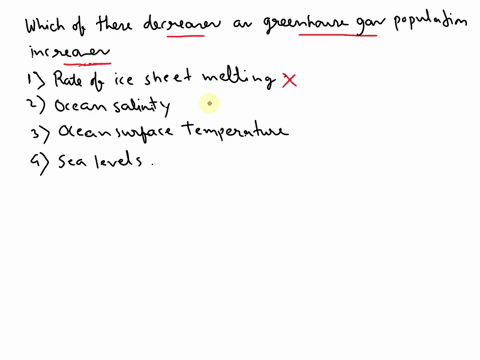 Which of these decreases as greenhouse gas population
increases
1) Rate of ice sheet melting ✗
2) Ocean salinity
3) Ocean surface temperature
4) Sea levels.